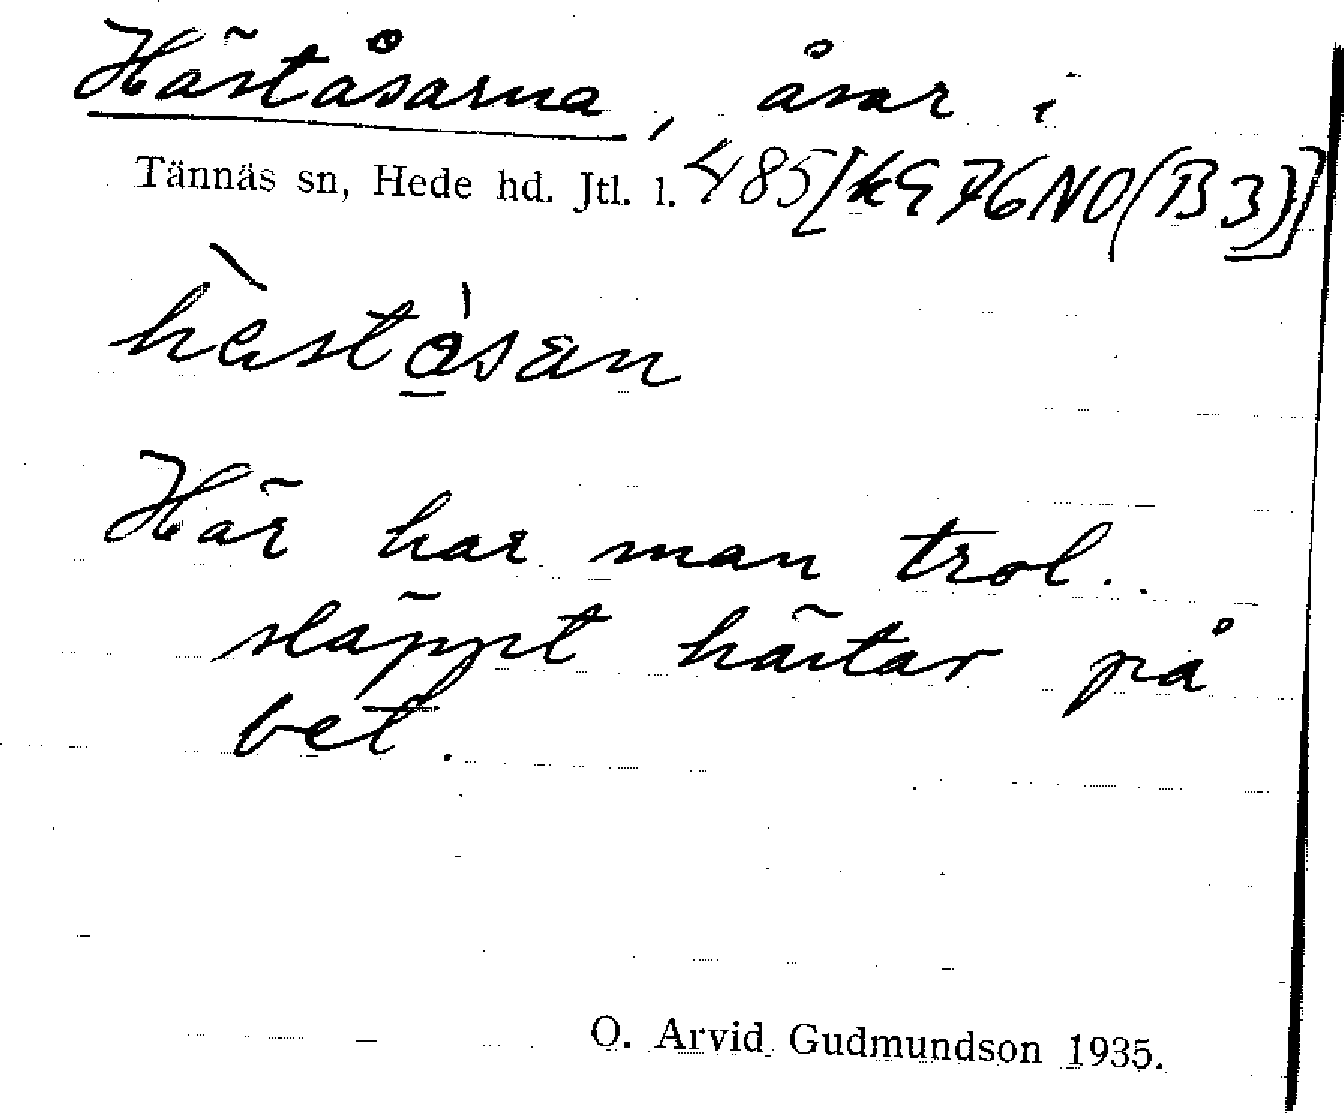 Häståsarna, åsar i
Tännäs sn, Hede hd. Jtl. l. 485 [kg 76 NO (B3)]
hèståsan
Här har man trol.
släppt hästar på
bet.
O. Arvid Gudmundson 1935.